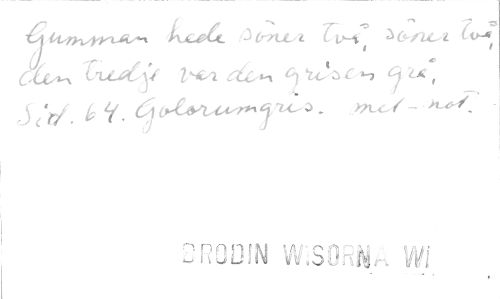 Gumman hede söner två, söner två,
den tredje var den grisen grå,
Sid. 64. Golorumgris. mel-not.
BRODIN WISORNA WI